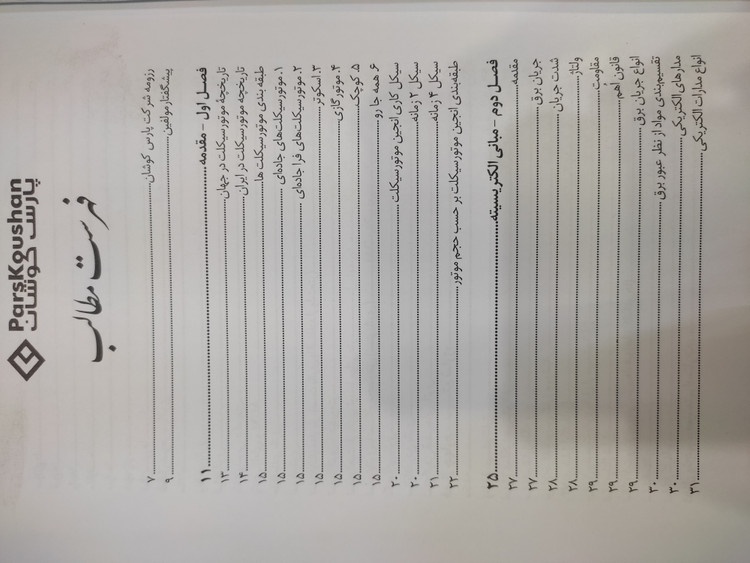 ParsKoushan
پارس کوشان
فهرست مطالب
رزومه شرکت پارس کوشان ۷
پیشگفتار مولفین ۹
فصل اول - مقدمه ۱۱
تاریخچه موتورسیکلت در جهان ۱۳
تاریخچه موتورسیکلت در ایران ۱۴
طبقه بندی موتورسیکلت ها ۱۵
۱. موتورسیکلت‌های جاده‌ای ۱۵
۲. موتورسیکلت‌های فرا جاده‌ای ۱۵
۳. اسکوتر ۱۵
۴. موتور گازی ۱۵
۵. کوچک ۱۵
۶. همه جا رو ۱۵
سیکل کاری انجین موتورسیکلت ۲۰
سیکل ۲ زمانه ۲۰
سیکل ۴ زمانه ۲۱
طبقه‌بندی انجین موتورسیکلت بر حسب حجم موتور ۲۲
فصل دوم - مبانی الکتریسیته ۲۵
مقدمه ۲۷
جریان برق ۲۷
شدت جریان ۲۸
ولتاژ ۲۸
مقاومت ۲۹
قانون اهم ۲۹
انواع جریان برق ۲۹
تقسیم‌بندی مواد از نظر عبور برق ۳۰
مدارهای الکتریکی ۳۰
انواع مدارات الکتریکی ۳۱